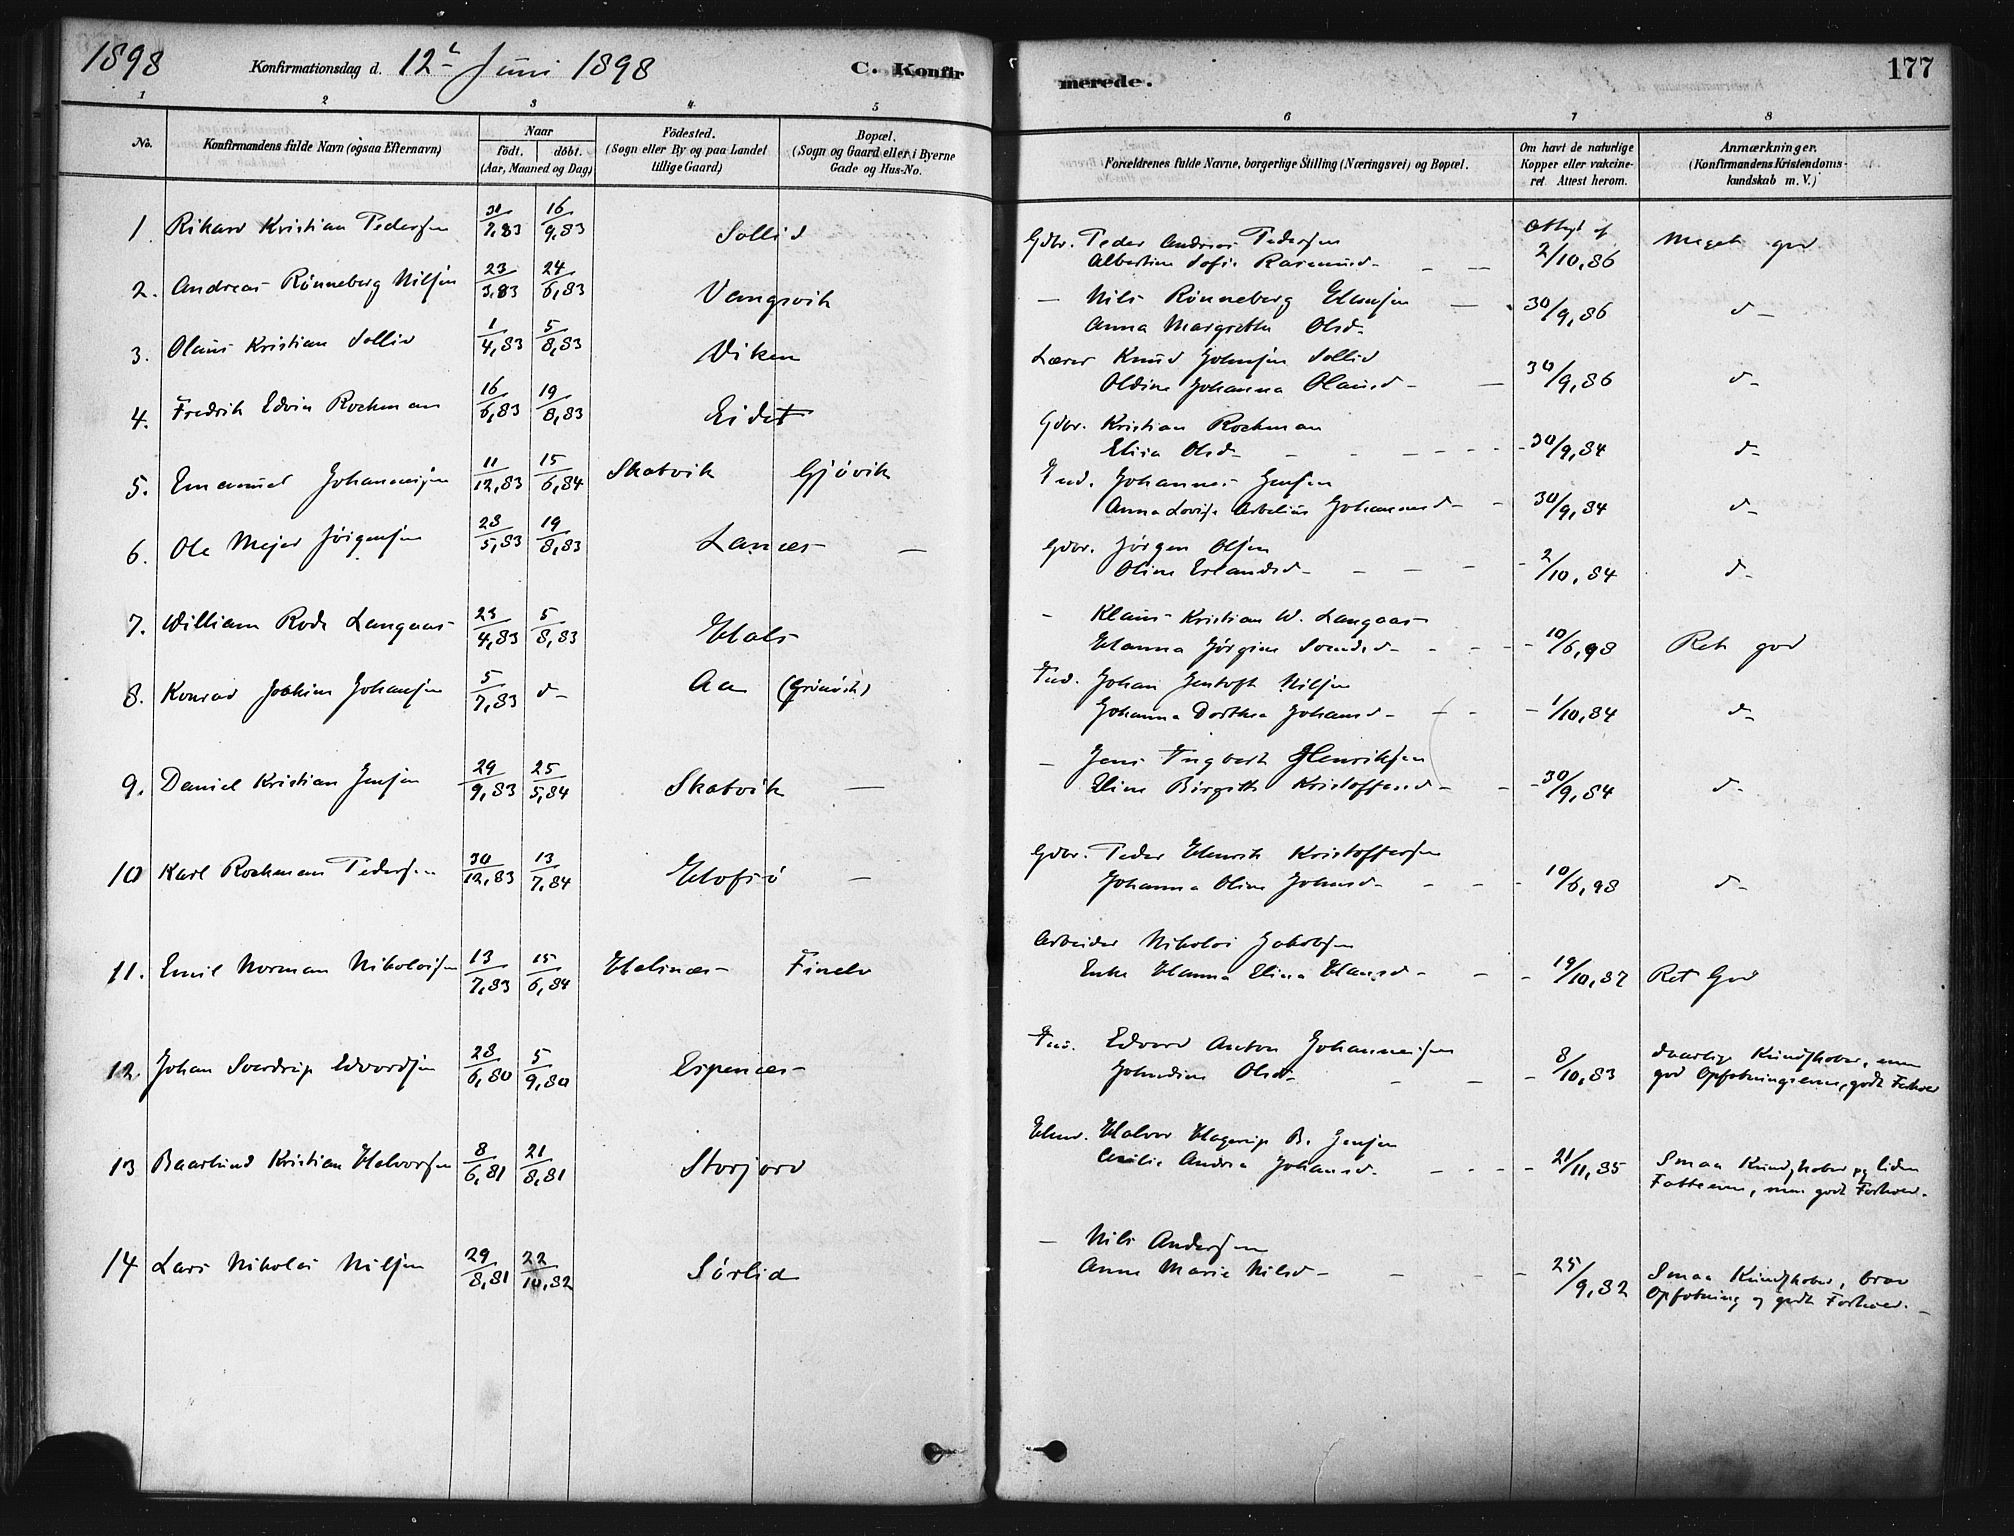 1898 Konfirmationsdag d. 12 Juni 1898 C. Konfirmerede. 177
1 2 3 4 5 6 7 8
No. Konfirmandens fulde Navn (ogsaa Efternavn) Naar födt. döbt. (Aar, Maaned og Dag) Födested. (Sogn eller By og paa Landet tillige Gaard) Bopæl. (Sogn og Gaard eller i Byerne Gade og Hus-No. Forældrenes fulde Navne, borgerlige Stilling (Næringsvei) og Bopæl. Om havt de naturlige Kopper eller vakcineret. Attest herom. Anmærkninger. (Konfirmandens Kristendomskundskab m. V.)
1. Rikard Kristian Pedersen 16/9,83 Sollid Gdbr. Peder Andreas Pedersen
Albertine Sofie Rasmusd. 2/10,86 Meget god
2. Andreas Rønneberg Nilsen 23/3,83 24/6,83 Vangsvik - Nils Rønneberg Hansen
Anna Margrethe Olsd. 30/9,86 d-
3. Olaus Kristian Sollid 1/4,83 5/8,83 Viken Lærer Knud Johnsen Sollid
Oldine Johanna Olausd. 30/9,86 d-
4. Fredrik Edvin Rochman 16/6,83 19/8,83 Eidet Gdbr. Kristian Rochman
Elisa Olsd. 30/9,84 d-
5. Emanuel Johannesen 11/12,83 15/6,84 Skatvik Gjøvik Ind. Johannes Jensen
Anna Lovise Johannesd. 30/9,84 d-
6. Ole Mejer Jørgensen 28/5,83 19/8,83 Lanæs - Gdbr. Jørgen Olsen
Oline Erlandsd. 2/10,84 d-
7. William Rode Langaas 23/4,83 5/8,83 Hals - Klaus Kristian W. Langaas
Hanna Jørgine 10/6,98 Ret god
8. Konrad Joakim Johansen 5/7,83 d- Aa Ind. Johan Jentoft Nilsen
Johanna Dorthea Johansd. 1/10,84 d-
9. Daniel Kristian Jensen 29/9,83 25/5,84 Skatvik - - Jens Ingbert Henriksen
Eline Birgitte Kristoffersd. 30/9,84 d-
10 Karl Rochman Pedersen 30/12,83 13/7,84 Hofsø - Gdbr. Peder Henrik Kristoffersen
Johanna Oline Johnsd. 10/6,98 d-
11. Emil Norman Nikolaisen 13/7,83 15/6,84 Halsnæs Finelv Arbeider Nikolai Jakobsen
Enke Hanna Elina Hansd. 19/10,87 Ret God
12. Johan Sverdrup Edvardsen 28/6,80 5/9,80 Espenæs Ind. Edvard Anton Johannesen
Johndine Olsd. 8/10,83 daarlige Kundskaber, men
god Opfatningsevne, godt Forhold
13 Baarlund Kristian Halvorsen 8/6,81 21/8,81 Storjord Halvor Hagerup B. Jensen
Andrea Johansd. 21/11,85 Smaa Kundskaber og liden
Fatteevne, men godt Forhold.
14 Lars Nikolai Nilsen 29/8,81 22/10,82 Sørlid - Nils Andersen
Anne Marie Nilsd. 25/9,82 Smaa Kundskaber, brav
Opfatning og godt Forhold.